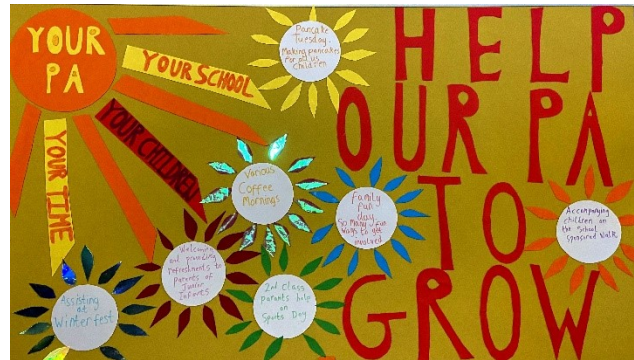 YOUR
PA
YOUR SCHOOL
YOUR CHILDREN
YOUR TIME
HELP
OUR PA
TO
GROW
Pancake
Tuesday.
Making pancakes
for all us
children
Various
Coffee
Mornings
Family
Fun
day
So many fun
ways to get
involved
Accompanying
children on
the School
Sponsored Walk
Welcoming
and providing
refreshments to
Parents of
Junior
Infants
2nd Class
parents help
on
Sports Day
Assisting
at
Winterfest